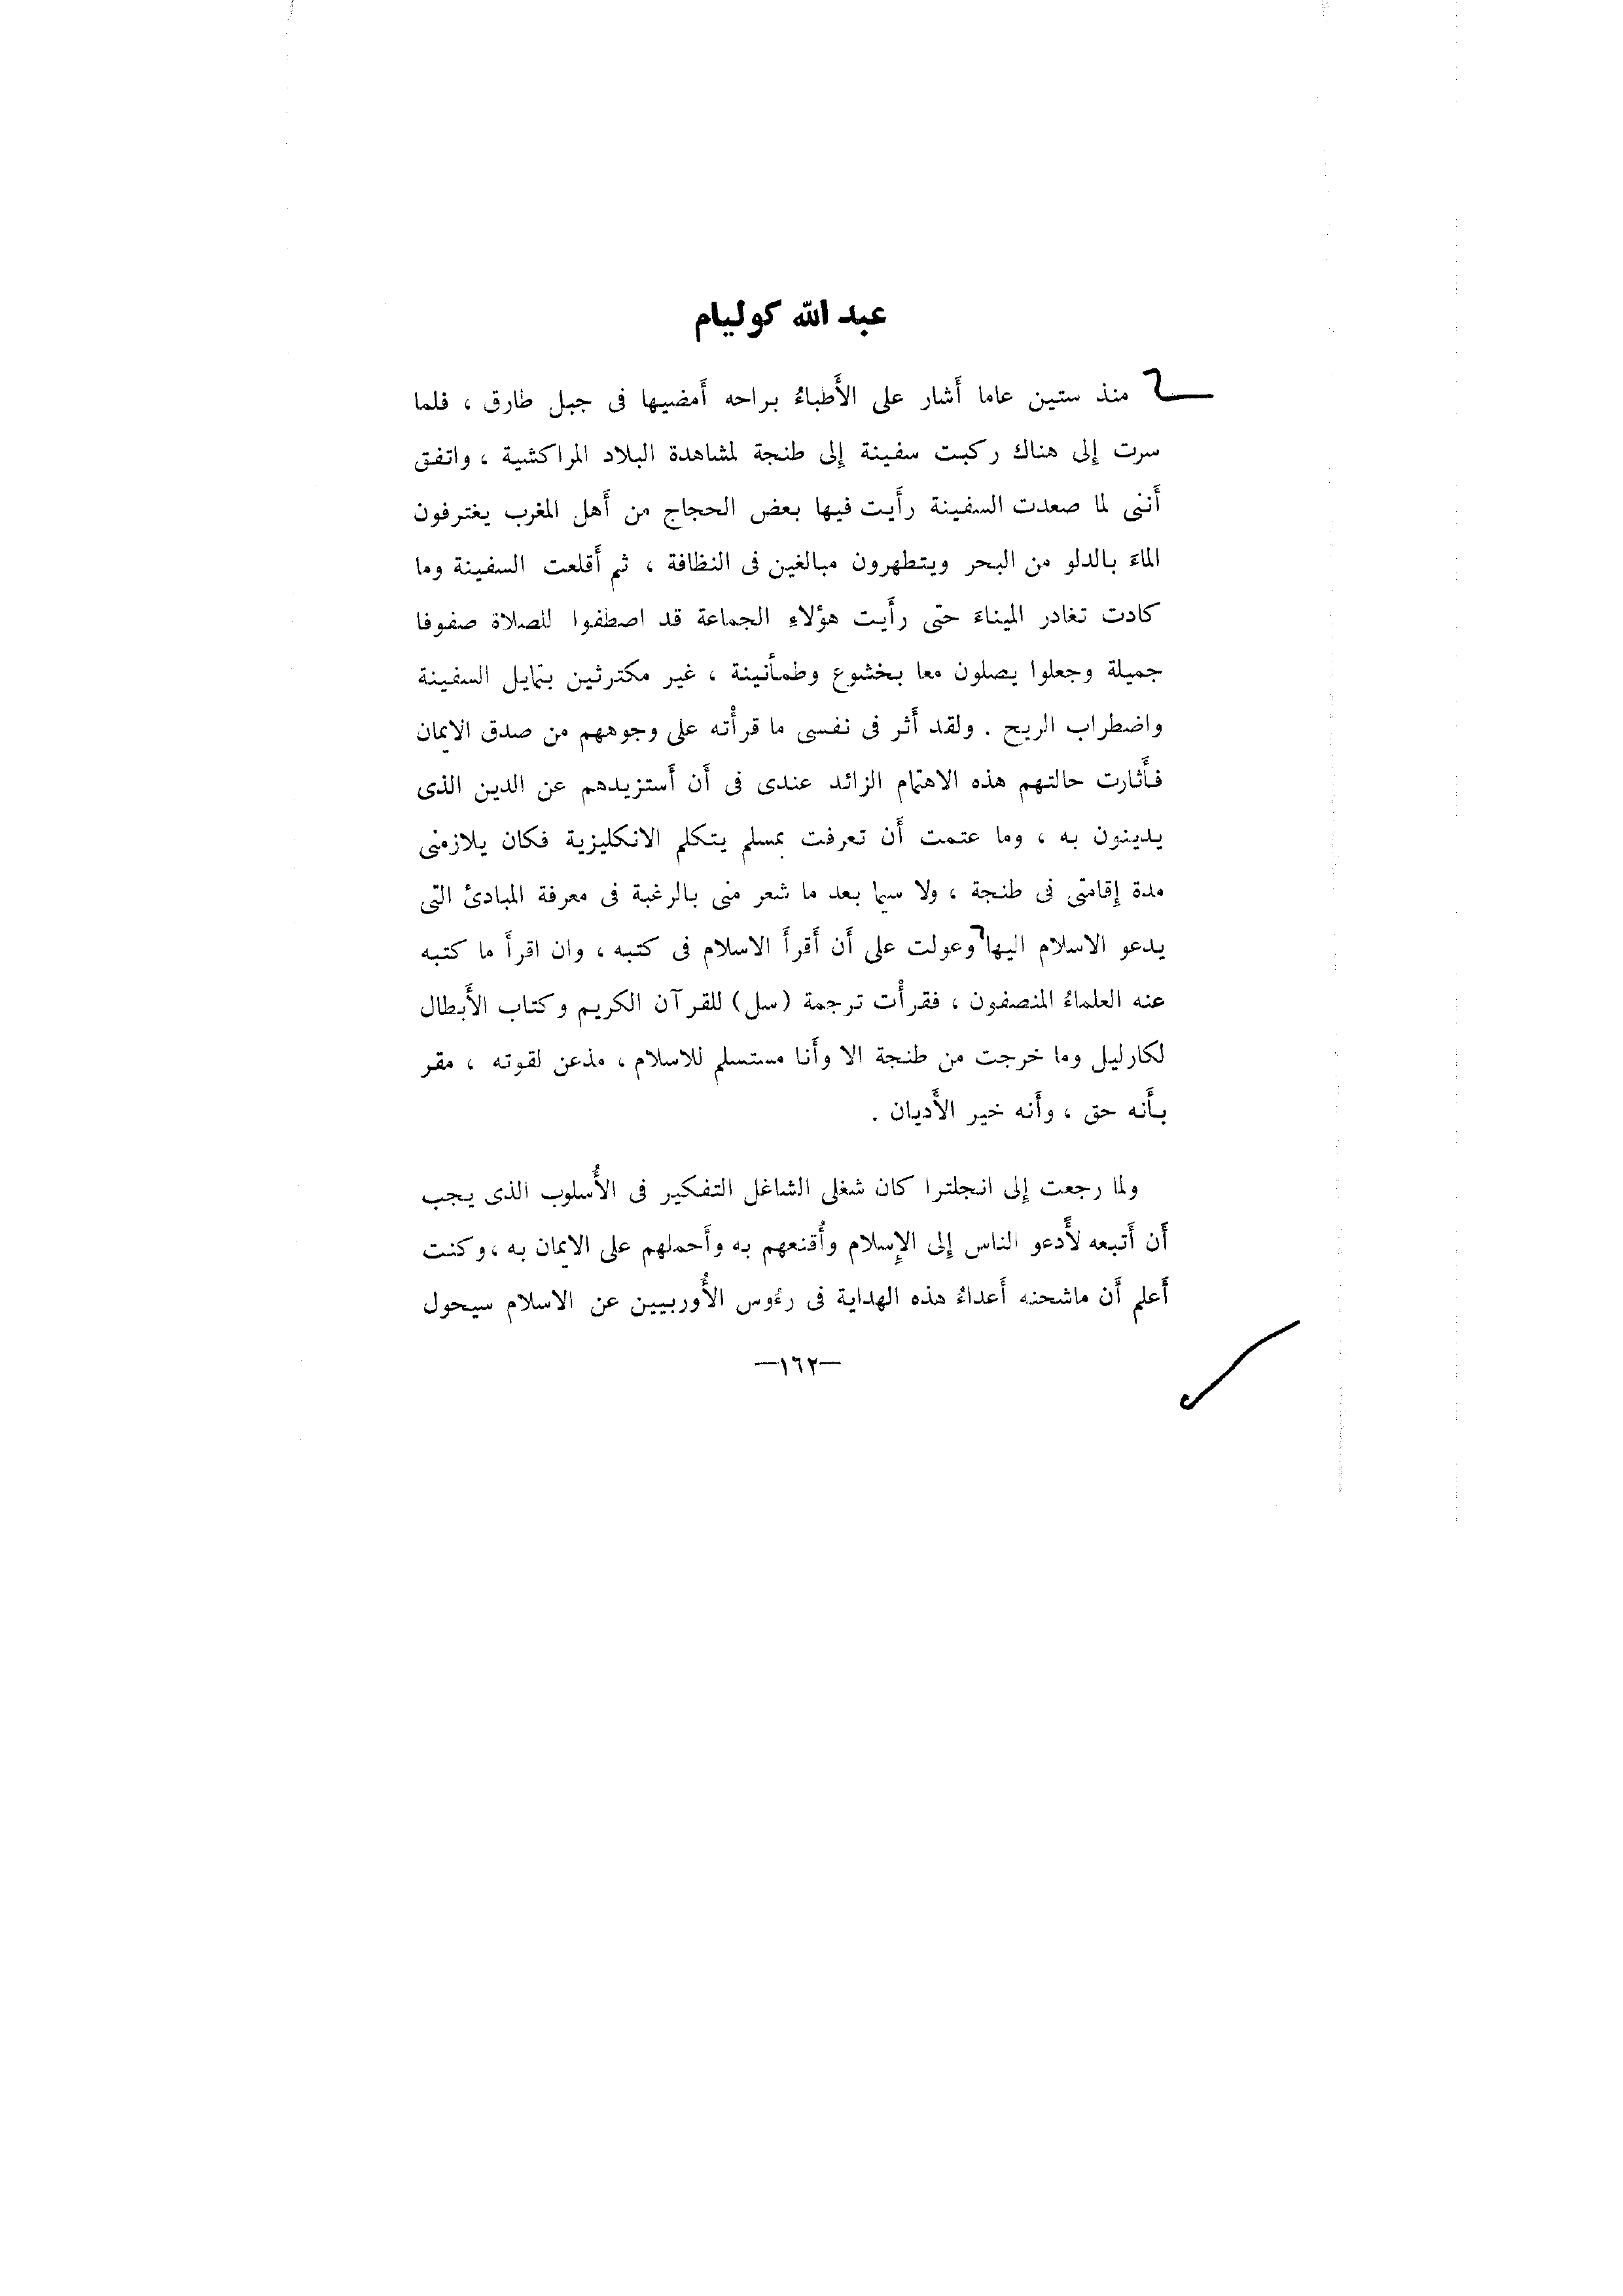 عبد الله كوليام
منذ ستين عاما أشار على الأطباءُ براحه أمضيها فى جبل طارق ، فلما
سرت إلى هناك ركبت سفينة إلى طنجة لمشاهدة البلاد المراكشية ، واتفق
أننى لما صعدت السفينة رأيت فيها بعض الحجاج من أهل المغرب يغترفون
الماءَ بالدلو من البحر ويتطهرون مبالغين فى النظافة ، ثم أقلعت السفينة وما
كادت تغادر الميناءَ حتى رأيت هؤلاءِ الجماعة قد اصطفوا للصلاة صفوفا
جميلة وجعلوا يصلون معا بخشوع وطمأنينة ، غير مكترثين بتمايل السفينة
واضطراب الريح . ولقد أثر فى نفسى ما قرأته على وجوههم من صدق الايمان
فأثارت حالتهم هذه الاهتمام الزائد عندى فى أن أستزيدهم عن الدين الذى
يدينون به ، وما عتمت أن تعرفت بمسلم يتكلم الانكليزية فكان يلازمنى
مدة إقامتى فى طنجة ، ولا سيما بعد ما شعر منى بالرغبة فى معرفة المبادئ التى
يدعو الاسلام اليها وعولت على أن أقرأ الاسلام فى كتبه ، وان اقرأ ما كتبه
عنه العلماءُ المنصفون ، فقرأت ترجمة (سل) للقرآن الكريم وكتاب الأبطال
لكارليل وما خرجت من طنجة الا وأنا مستسلم للاسلام ، مذعن لقوته ، مقر
بأنه حق ، وأنه خير الأديان .
ولما رجعت إلى انجلترا كان شغلى الشاغل التفكير فى الأُسلوب الذى يجب
أن أتبعه لأدعو الناس إلى الإسلام وأُقنعهم به وأحملهم على الايمان به ، وكنت
أعلم أن ماشحنه أعداءُ هذه الهداية فى رءُوس الأُوربيين عن الاسلام سيحول
—١٦٢—